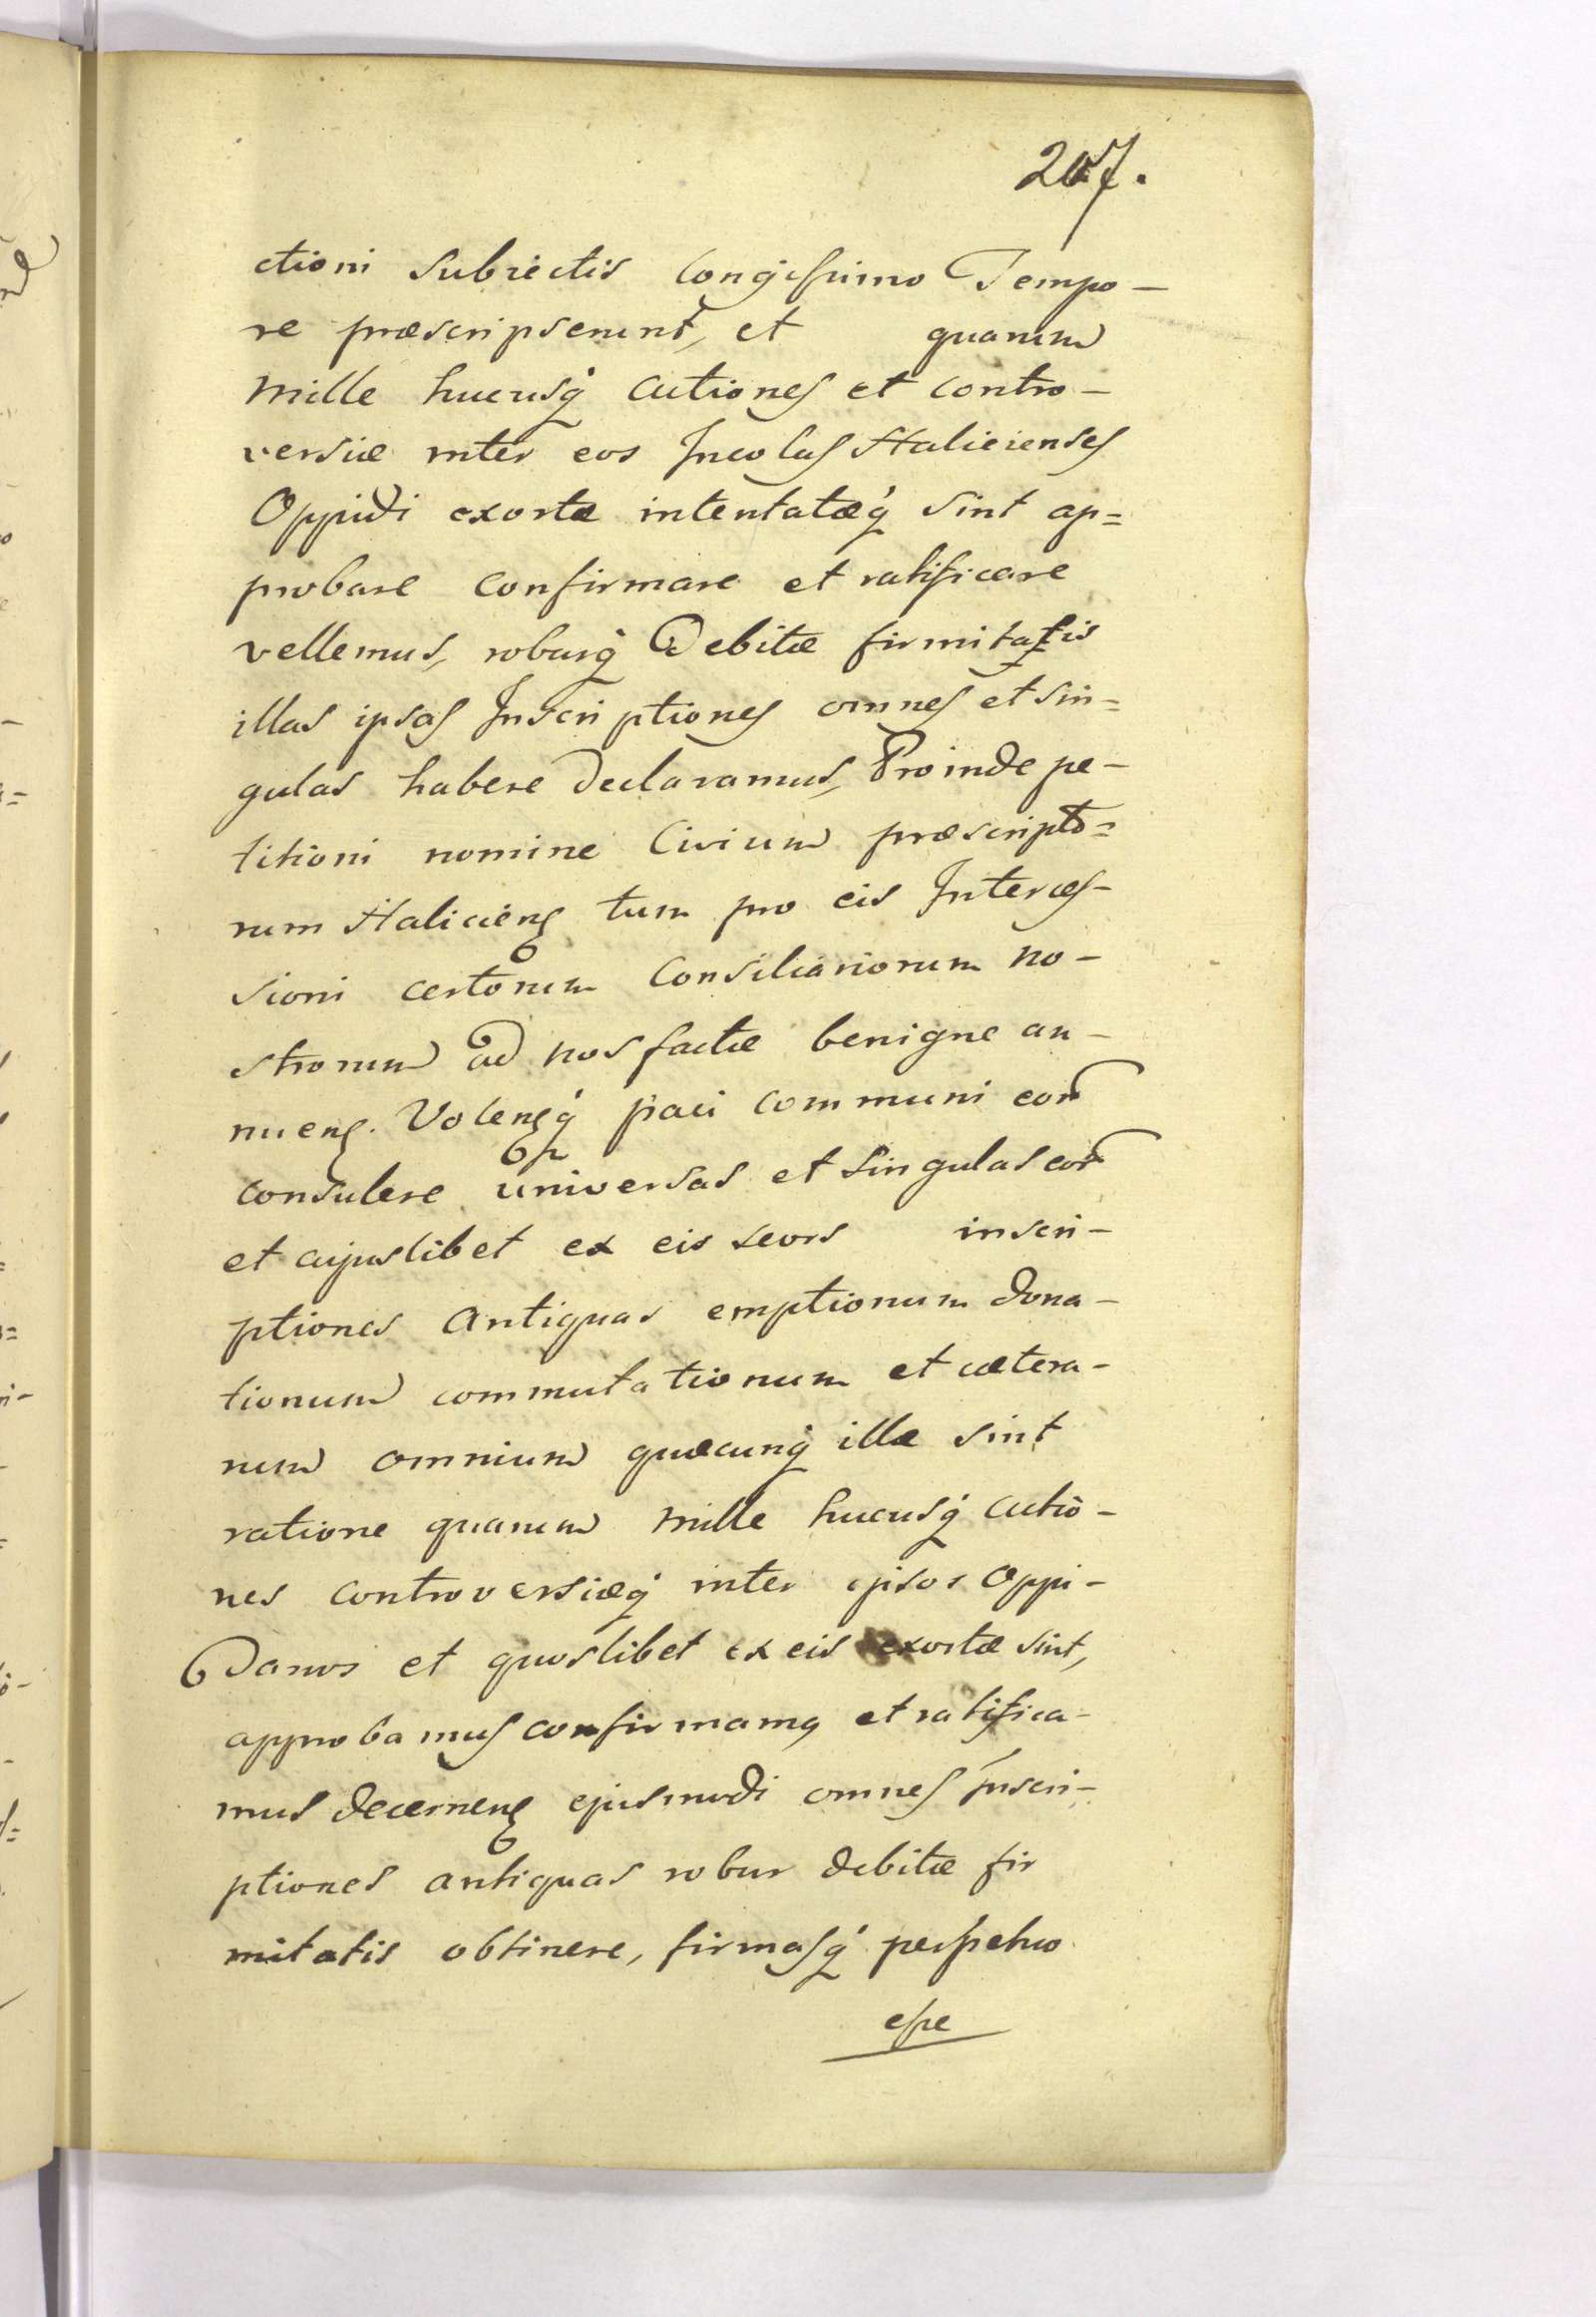 207.
ctioni subiectis longissimo Tempo-
re præscripserunt, et quarum
mille hucusq' actiones et contro-
versiæ inter eos Incolas Halicienses
Oppidi exortæ intentatæq' sint ap=
probare confirmare et ratificare
vellemus, roburq' Debitæ firmitatis
illas ipsas Inscriptiones omnes et sin=
gulas habere declaramus, Proinde pe-
titioni nomine Civium præscripto=
rum Haliciens tum pro eis Interces-
sioni certorum Consiliariorum no-
strorum ad nos factæ benigne an-
nuens. Volensq' paci communi eor
consulere universas et singulas eor
et cujuslibet ex eis seors inscri-
ptiones antiquas emptionum dona-
tionum commutationum et cætera-
rum omnium quæcunq' illæ sint
ratione quarum mille hucusq' actio-
nes controversiæq' inter ipsos Oppi-
Danos et quoslibet ex eis exortæ sint,
approbamus confirmamq et ratifica-
mus decernens ejusmodi omnes Inscri-
ptiones antiquas robur debitæ fir
mitatis obtinere, firmasq' perpetuo
esse